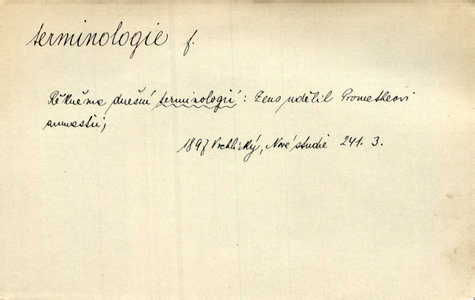 terminologie f.
Řekněme dnešní terminologií: Zeus udělil Prometheovi
amnestii;
1897 Vrchlický, Nové studie 241. 3.